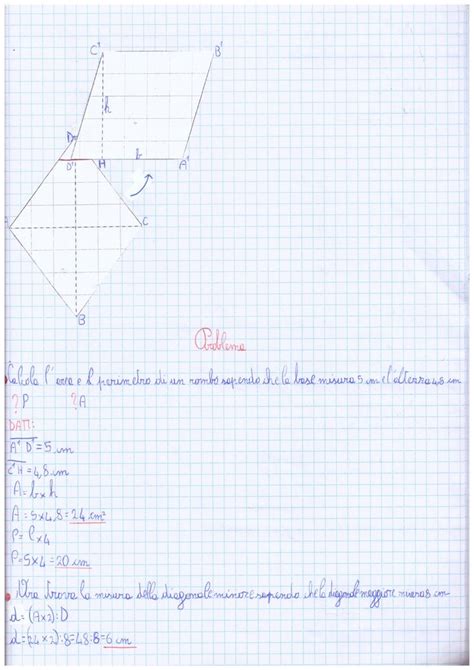 C' B'
h
D
D' H b A'
C
B
Problema
Calcola l'area e il perimetro di un rombo sapendo che la base misura 5 cm e l'altezza 4,8 cm
? P ? A
DATI:
A' D' = 5 cm
C'H = 4,8 cm
A = b x h
A = 5 x 4,8 = 24 cm²
P = l x 4
P = 5 x 4 = 20 cm
Ora trova la misura della diagonale minore sapendo che la diagonale maggiore misura 8 cm
d = (A x 2) : D
d = (24 x 2) : 8 = 48 : 8 = 6 cm